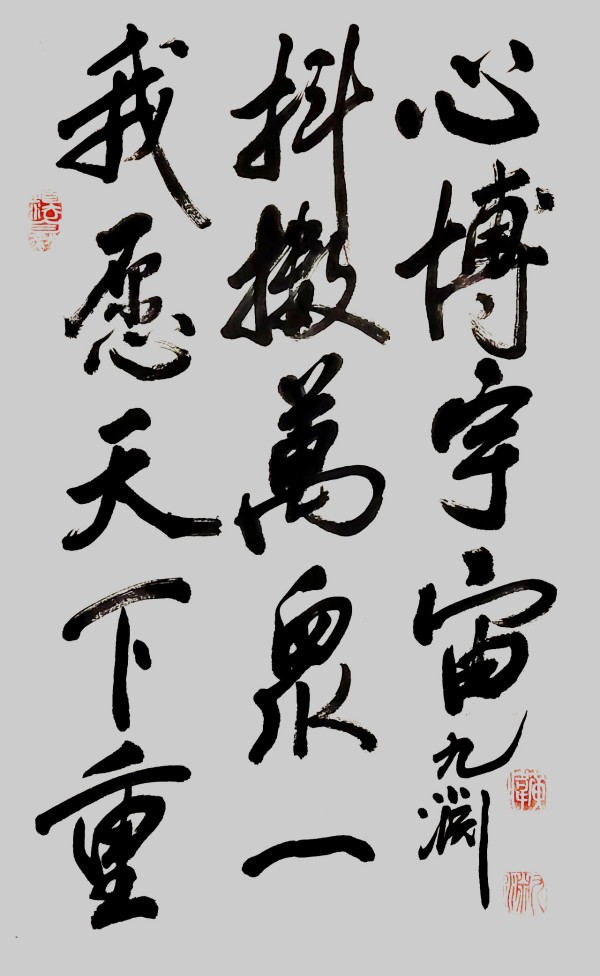 我愿天下重
抖擞萬眾一
心博宇宙
九渊